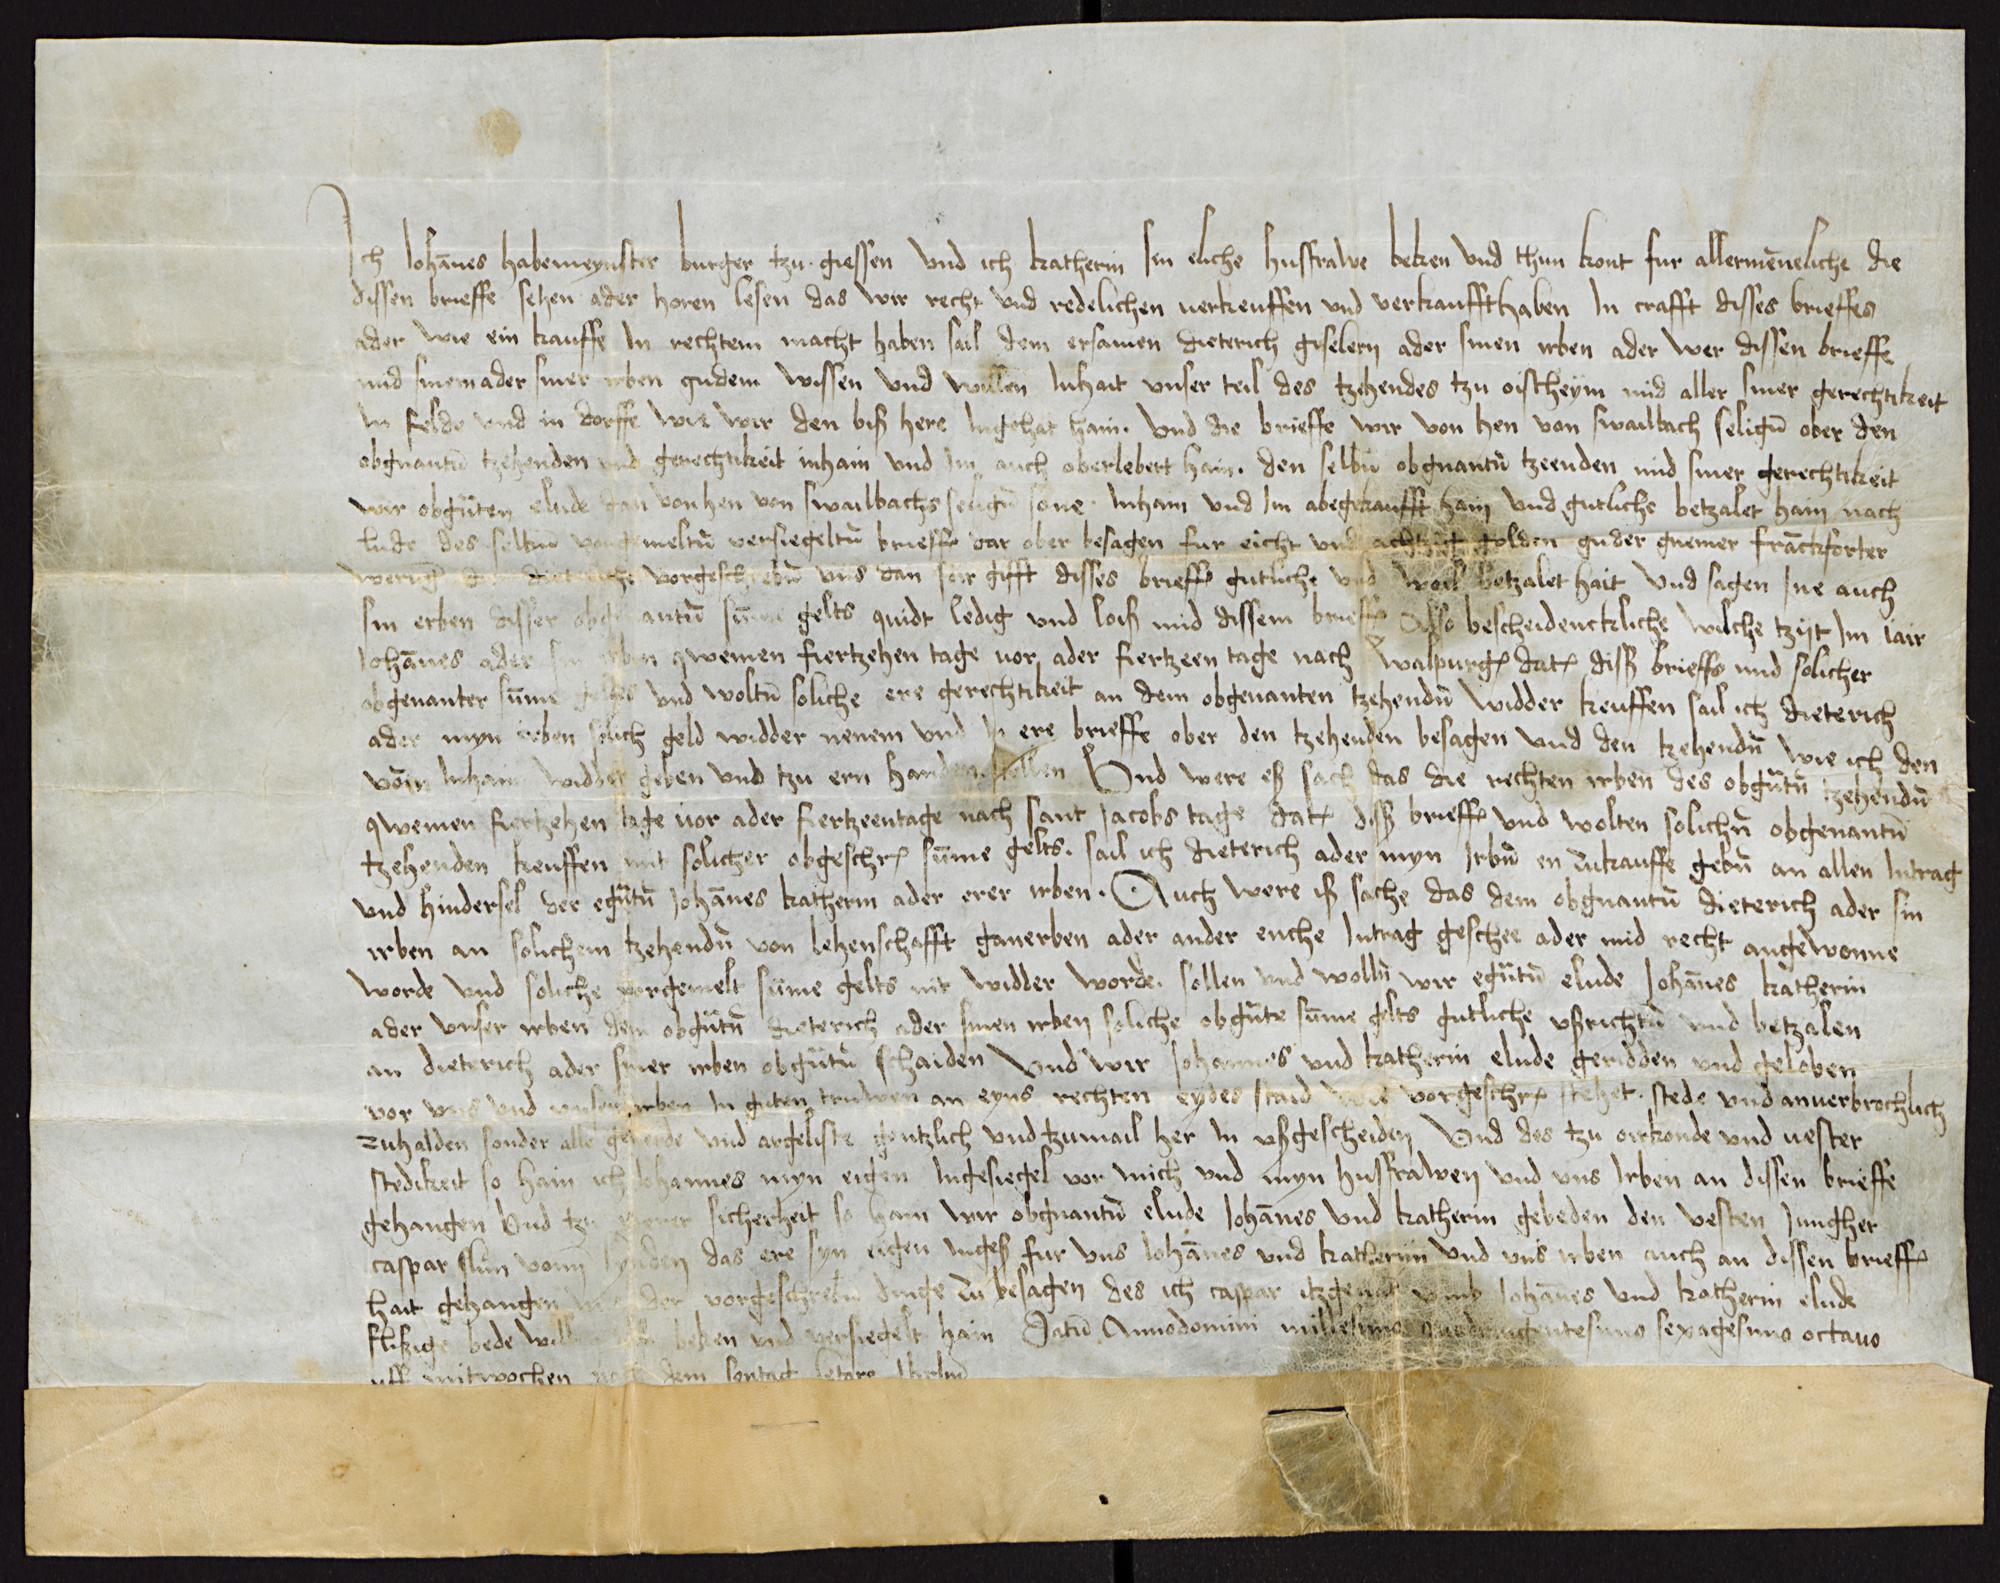 Ich Johānes habemeynster burger tzu giessen und ich katherin sin eliche husfrawe beken und thun kont fur allermēneliche die
dissen brieffe sehen ader horen lesen das wir recht und redelichen verkeuffen und verkaufft haben In crafft disses brieffes
ader wie ein kauffe In rechtem macht haben sail dem ersamen dieterich giselern ader sinen irben ader wer dissen brieffe
mid sinem ader siner irben gudem wissen und willen Inhait unser teil des tzehendes tzu oistheym mid aller siner gerechtikeit
In felde und in dorffe wie wir den biß here Ingehat hain. und die brieffe wir von hen von swailbach seligū ober den
obgnantū tzehenden und gerechtikeit inhain und Im auch oberlebert hain. den selbū obgnantū tzeenden mid siner gerechtikeit
wir obgūten elude dan von hen von swailbachs seligū sone Inhain und Im abegekaufft hain und gutliche betzalet hain nach
lude des selbū vorgemeltū versiegeltū brieffe dar ober besagen fur eicht und achtzig golden guder gnemer franckforter
werūg die dieteriche vorgeschrebū uns dan vor gifft disses brieffs gutliche und woil betzalet hait und sagen Ine auch
sin erben disser obgenantū sūme gelts quidt ledig und loiß mid dissem brieffe Also bescheidenckliche wilche tzijt Im iair
Johānes ader sin irben qwemen fiertzehen tage vor ader fiertzeen tage nach walpurg dat diß brieffs mid solicher
obgenanter sūme geldes und woltū soliche ere gerechtikeit an dem obgenanten tzehendū widder keuffen sail ich dieterich
ader myn irben solich geld widder nemen und In ere brieffe ober den tzehenden besagen und den tzehendū wie ich den
von In Inhain widder geben und tzu ern handen stellen Und were eß sach das die rechten irben des obgūtū tzehendū
qwemen fiertzehen tage vor ader fiertzeentage nach sant Jacobs tage dat diß brieffs und wolten solichū obgenantū
tzehenden keuffen mit solicher obgeschr sūme gelts. sail ich dieterich ader myn Irbū en zukauffe gebū an allen Intrag
und hindersel der egūtū Johānes katherin ader erer irben. Auch were iß sache das dem obgnantū dieterich ader sin
irben an solichem tzehendū von lehenschafft ganerben ader ander enche Intrag geschee ader mid recht angewonne
worde und soliche vorgemelt sūme gelts nit widder worde. sollen und wollū wir egūtū elude Johānes katherin
ader unser irben dem obgūtū dieterich ader sinen irben soliche obgūte sūme gelts gutliche ußrichtū und betzalen
an dieterich ader siner irben obgūtū schaiden Und wir Johannes und katherin elude geridden und geloben
vor uns und unser irben In guten truwen an eyns rechten eydes staid wie vorgeschr stehet. stede und anverbrochlich
zuhalden sonder alle geverde und argeliste gentzlich und tzumail her In ußgescheiden Und des tzu oirkonde und vester
stedikeit so hain ich Johannes myn eigen Ingesiegel vor mich und myn husfrawen und uns Irben an dissen brieffe
gehangen Und tzu merer sicherheit so hain wir obgnantū elude Johānes und katherin gebeden den vesten Jungher
caspar slūn vonn lynden das ere syn eigen Ingeß fur uns Johānes und katherin und uns irben auch an dissen brieffe
hait gehangen ... der vorgeschrebū dinge zu besagen des ich caspar itzgenāt umb Johānes und katherin elude
flißige bede willen ... beken und versiegelt hain Datū Annodomini millesimo quadringentesimo sexagesimo octavo
uff mitwochen nach dem sontag letare Iherlm